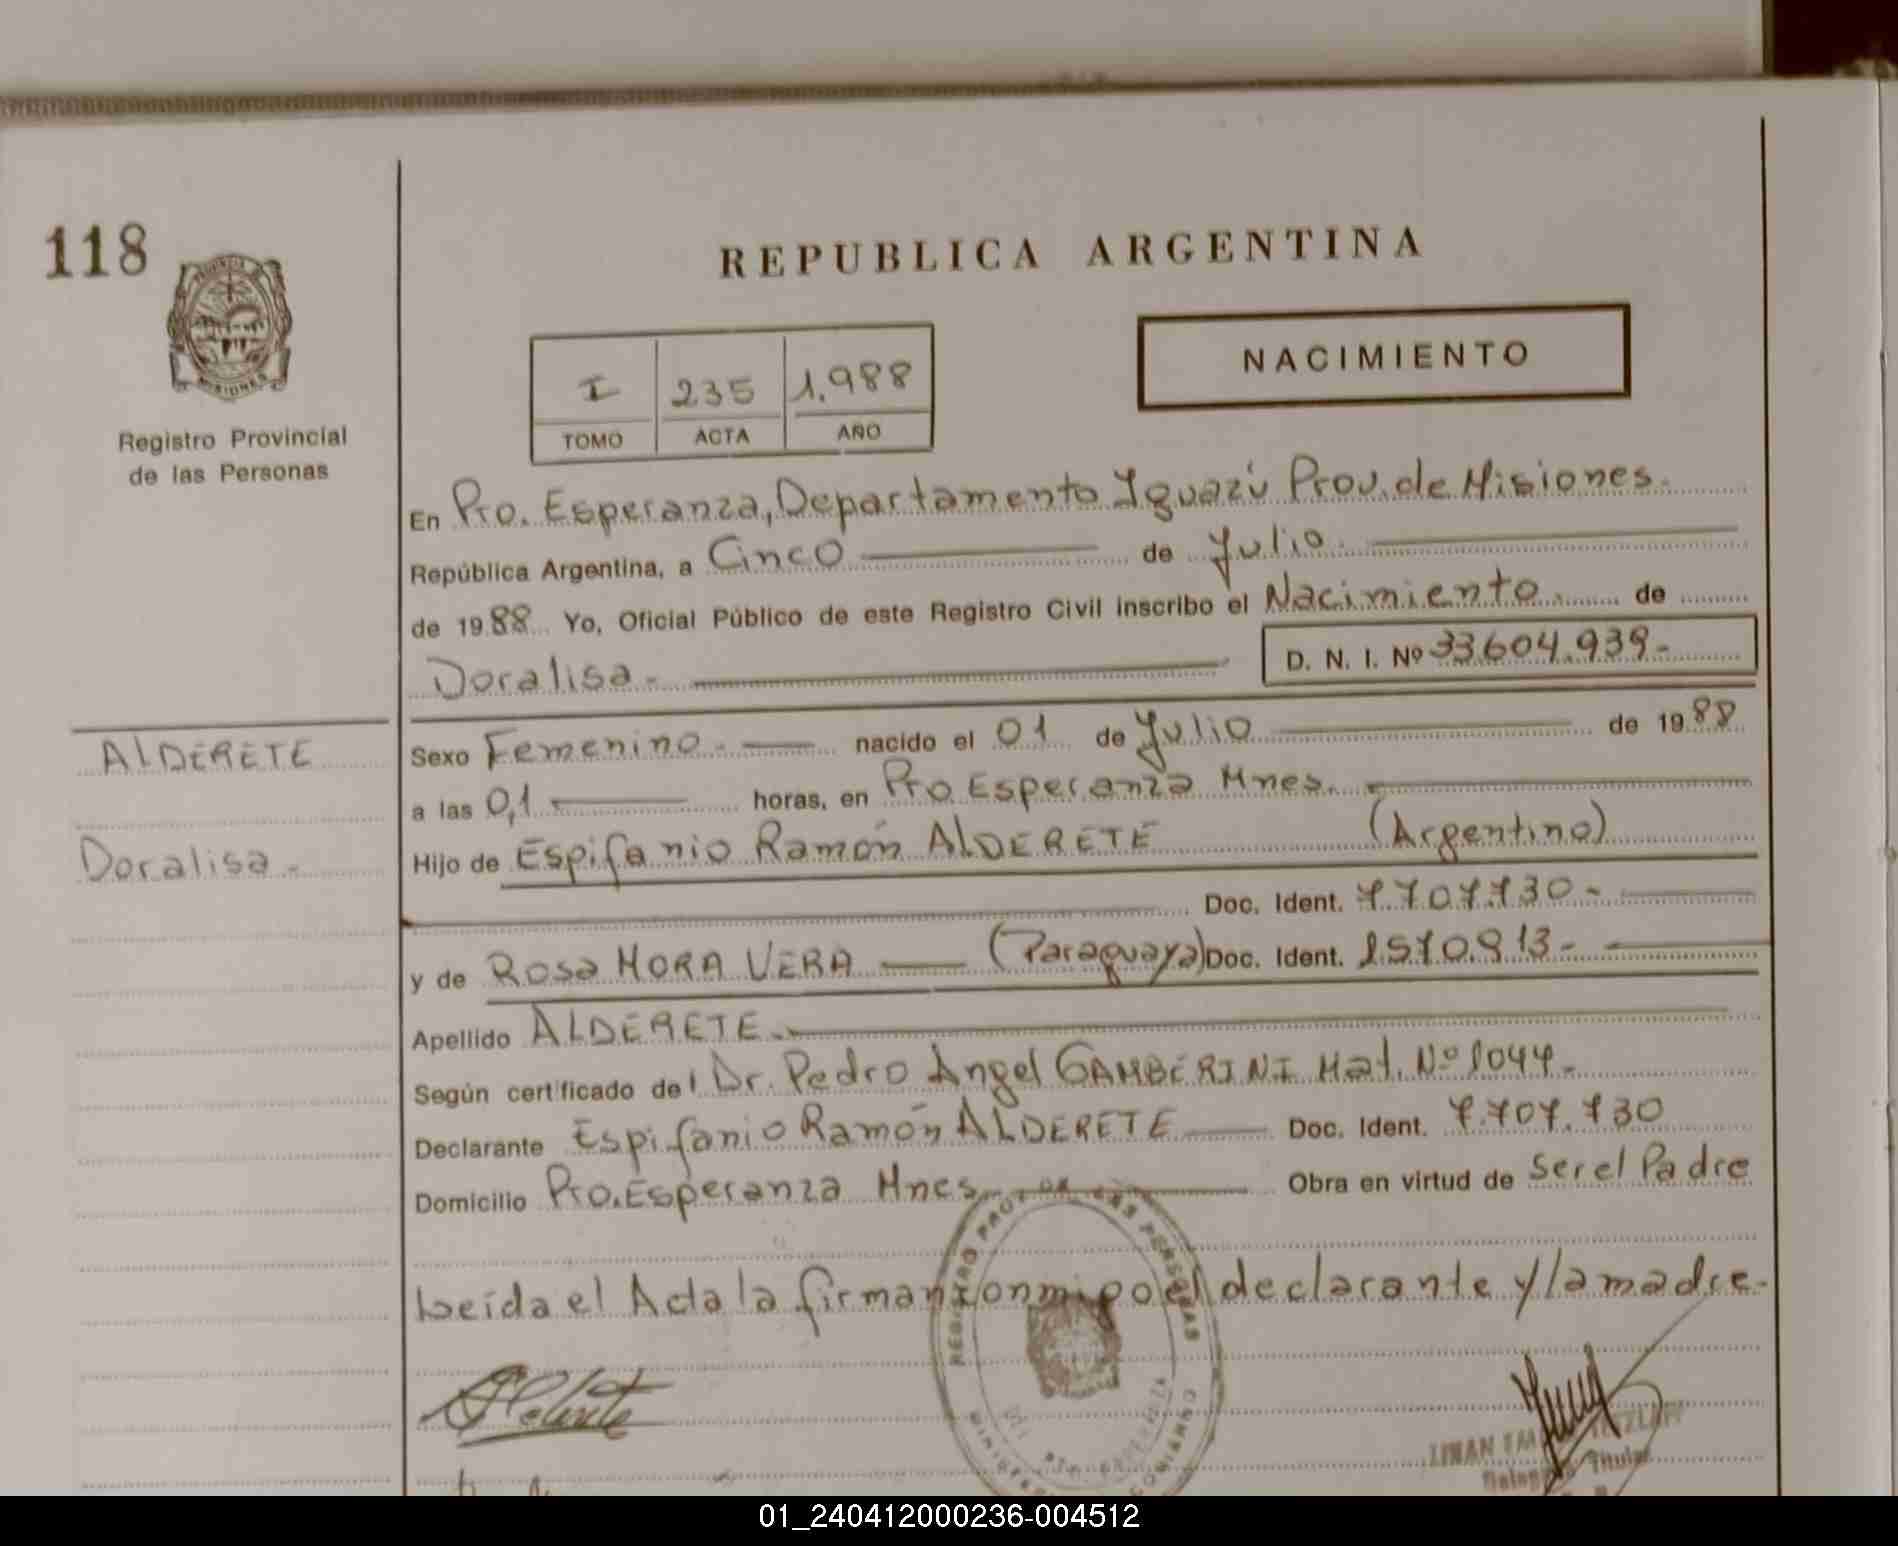 118
PROVINCIA DE
MISIONES
Registro Provincial
de las Personas
REPUBLICA ARGENTINA
NACIMIENTO
I 235 1.988
TOMO ACTA AÑO
En Pto. Esperanza, Departamento Iguazú Prov. de Misiones.
República Argentina, a Cinco de Julio
de 1988 Yo, Oficial Público de este Registro Civil inscribo el Nacimiento de
Doralisa.- D. N. I. Nº 33.604.939-
ALDERETE
Doralisa.-
Sexo Femenino.- nacido el 01 de Julio de 1988
a las 0,1 horas, en Pto Esperanza Mnes.
Hijo de Espifanio Ramón ALDERETE (Argentino)
Doc. Ident. 7.707.730-
y de Rosa MORA VERA (Paraguaya) Doc. Ident. 1.570.913-
Apellido ALDERETE.
Según certificado del Dr. Pedro Angel GAMBERINI Mat. Nº 1044.-
Declarante Espifanio Ramón ALDERETE Doc. Ident. 7.707.730
Domicilio Pto. Esperanza Mnes. Obra en virtud de Ser el Padre
Leída el Acta la firman conmigo el declarante y la madre.-
REGISTRO PROV. DE LAS PERSONAS
Titular
01_240412000236-004512